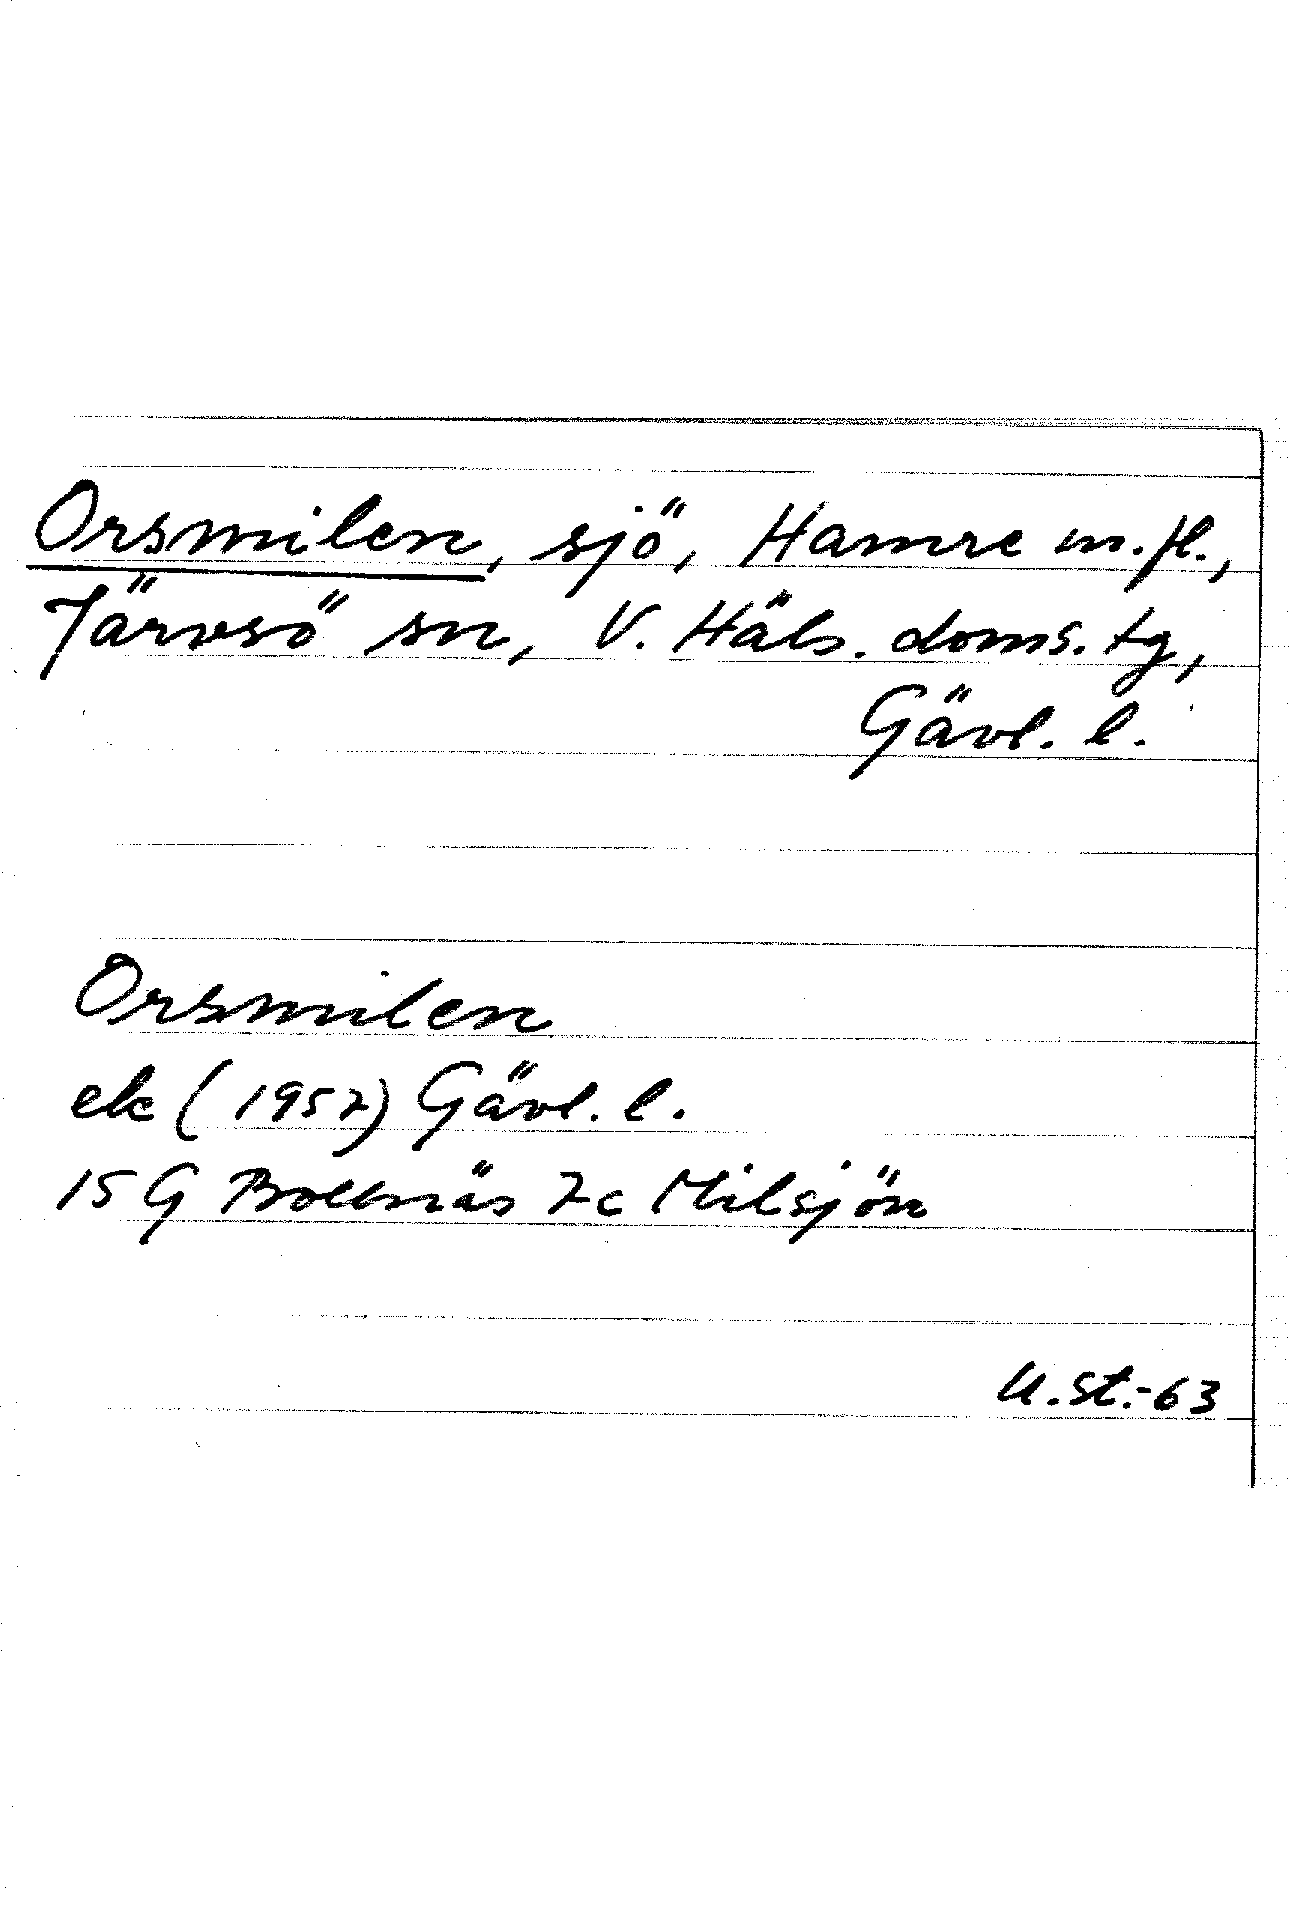 Orsmilen, sjö, Hamre m.fl.,
Järvsö sn, V. Häls. doms. tg,
Gävl. l.
Orsmilen
ek (1957) Gävl. l.
15 G Bollnäs 7c Milsjön
U.St.-63